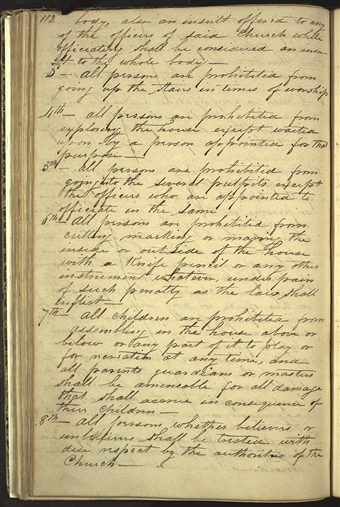 112 body, also an insult offered to any
of the officers of said Church while
officiating shall be considered an insu-
lt to the whole body —
3d — All persons are prohibited from
going up the stairs in times of worship
4th — All persons are prohibited from
exploring the house except waited
upon by a person appointed for that
purpose —
5th — All persons are prohibited from
going into the several pulpits except
the officers who are appointed to
officiate in the same
6th All persons are prohibited from
cutting marking or maring the
inside or outside of the house
with a Knife pencil or any other
instrument whatever, under pain
of such penalty as the law shall
inflect —
7th — All children are prohibited from
assembling in the house above or
below or any part of it to play or
for recriation at any time, and
all parents guardians or masters
shall be ameneable for all damage
that shall accrue in consequence of
their children —
8th — All persons whether believers or
unbelievers shall be treated with
due respect by the authorities of the
Church —